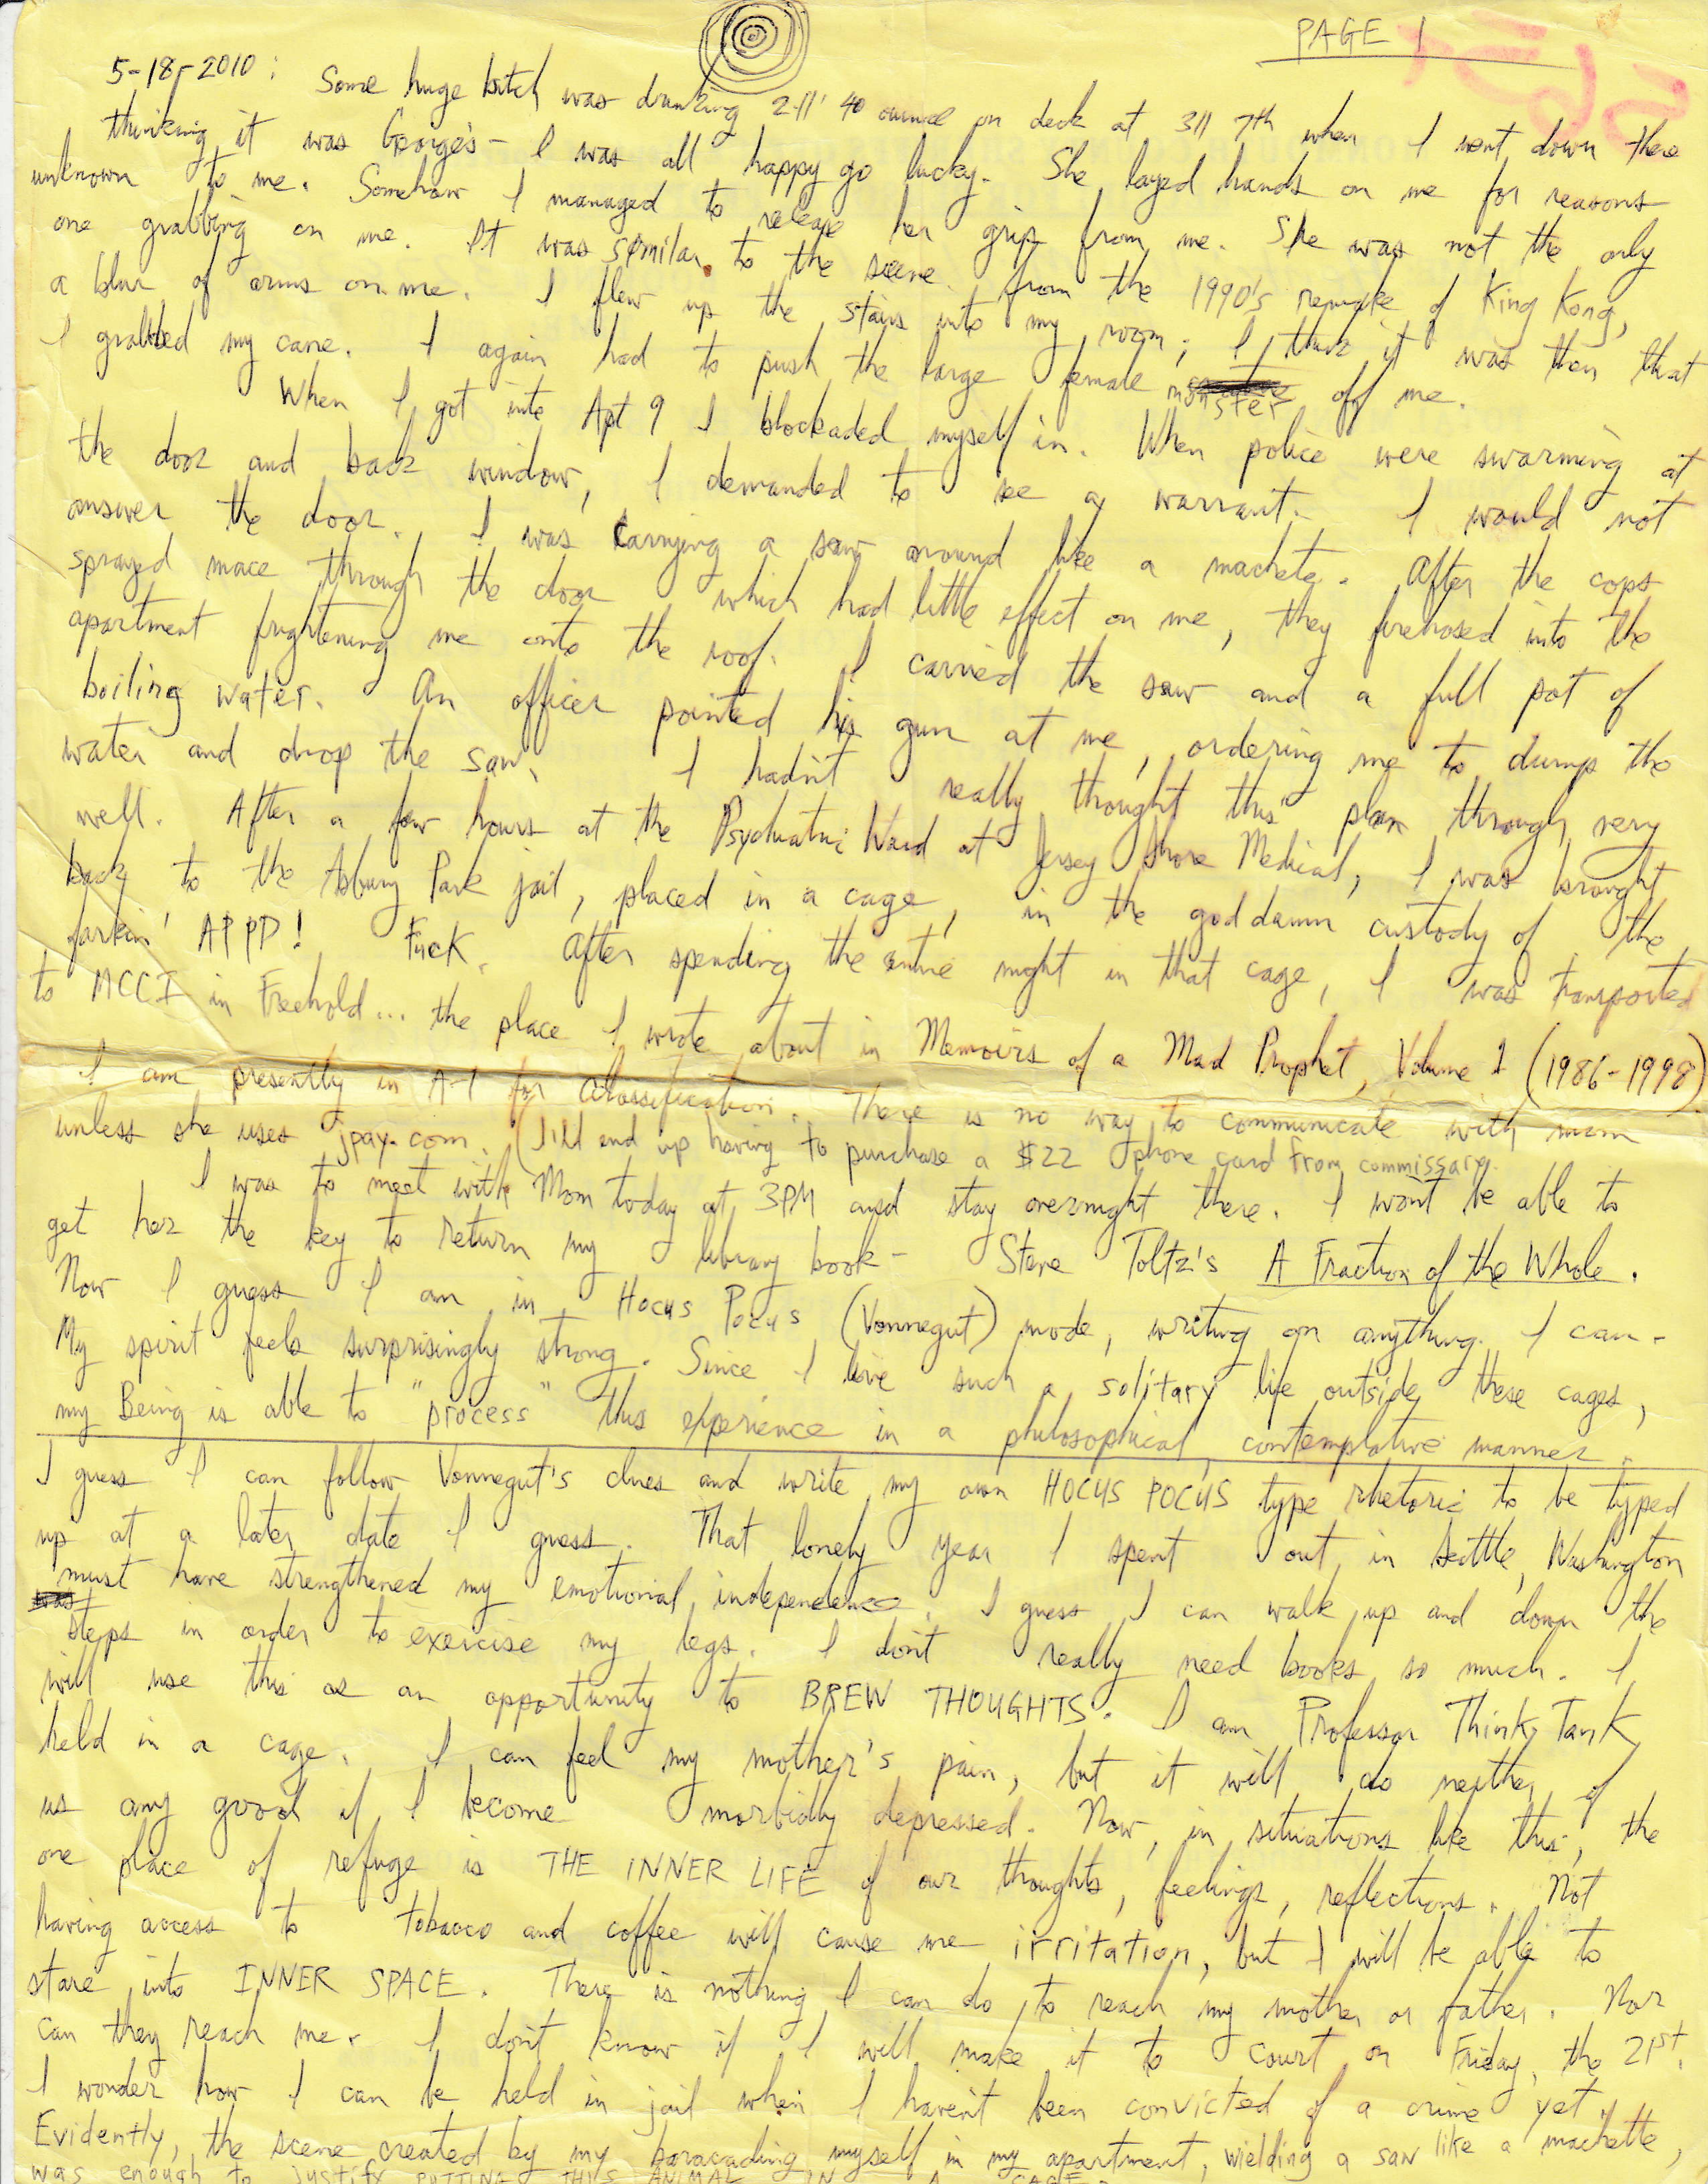 PAGE 1
5-18-2010: Some huge bitch was drinking 2-11' 40 ounce on deck at 311 7th when I went down there
thinking it was George's - I was all happy go lucky. She layed hands on me for reasons
unknown to me. Somehow I managed to release her grip from me. She was not the only
one grabbing on me. It was similar to the scene from the 1990's remake of King Kong,
a blur of arms on me. I flew up the stairs into my room; I think it was then that
I grabbed my cane. I again had to push the large female monster off me.
When I got into Apt 9 I blockaded myself in. When police were swarming at
the door and back window, I demanded to see a warrant. I would not
answer the door. I was carrying a saw around like a machete. After the cops
sprayed mace through the door which had little effect on me, they firehosed into the
apartment frightening me onto the roof. I carried the saw and a full pot of
boiling water. An officer pointed his gun at me, ordering me to dump the
water and drop the saw. I hadn't really thought this plan through very
well. After a few hours at the Psychiatric Ward at Jersey Shore Medical, I was brought
back to the Asbury Park jail, placed in a cage, in the god damn custody of the
farkin' APPD! Fuck. After spending the entire night in that cage, I was transported
to MCCI in Freehold... the place I wrote about in Memoirs of a Mad Prophet, Volume 1 (1986-1998)
I am presently in A-1 for Classification. There is no way to communicate with mom
unless she uses jpay.com. (I'll end up having to purchase a $22 phone card from commissary.
I was to meet with Mom today at 3PM and stay overnight there. I won't be able to
get her the key to return my library book - Steve Toltz's A Fraction of the Whole.
Now I guess I am in Hocus Pocus (Vonnegut) mode, writing on anything I can.
My spirit feels surprisingly strong. Since I live such a solitary life outside these cages,
my Being is able to "process" this experience in a philosophical, contemplative manner.
I guess I can follow Vonnegut's clues and write my own HOCUS POCUS type rhetoric to be typed
up at a later date I guess. That lonely year I spent out in Seattle, Washington
must have strengthened my emotional independence. I guess I can walk up and down the
steps in order to exercise my legs. I don't really need books so much. I
will use this as an opportunity to BREW THOUGHTS. I am Professor Think Tank
held in a cage. I can feel my mother's pain, but it will do neither of
us any good if I become morbidly depressed. Now, in situations like this, the
one place of refuge is THE INNER LIFE of our thoughts, feelings, reflections. Not
having access to tobacco and coffee will cause me irritation, but I will be able to
stare into INNER SPACE. There is nothing I can do to reach my mother or father. Nor
can they reach me. I don't know if I will make it to court on Friday, the 21st.
I wonder how I can be held in jail when I haven't been convicted of a crime yet.
Evidently, the scene created by my baracading myself in my apartment, wielding a saw like a machette,
was enough to justify PUTTING THIS ANIMAL IN A CAGE.